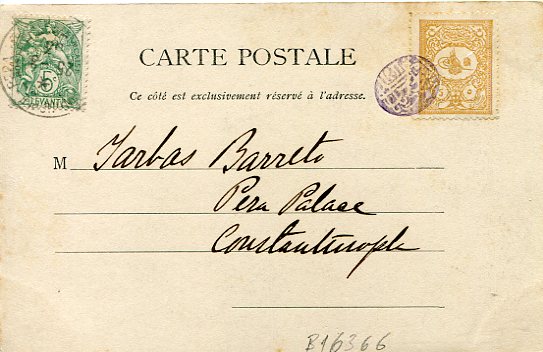 CARTE POSTALE
Ce côté est exclusivement réservé à l'adresse.
5
LEVANT
M Jarbas Barreto
Pera Palace
Constantinople
B16366